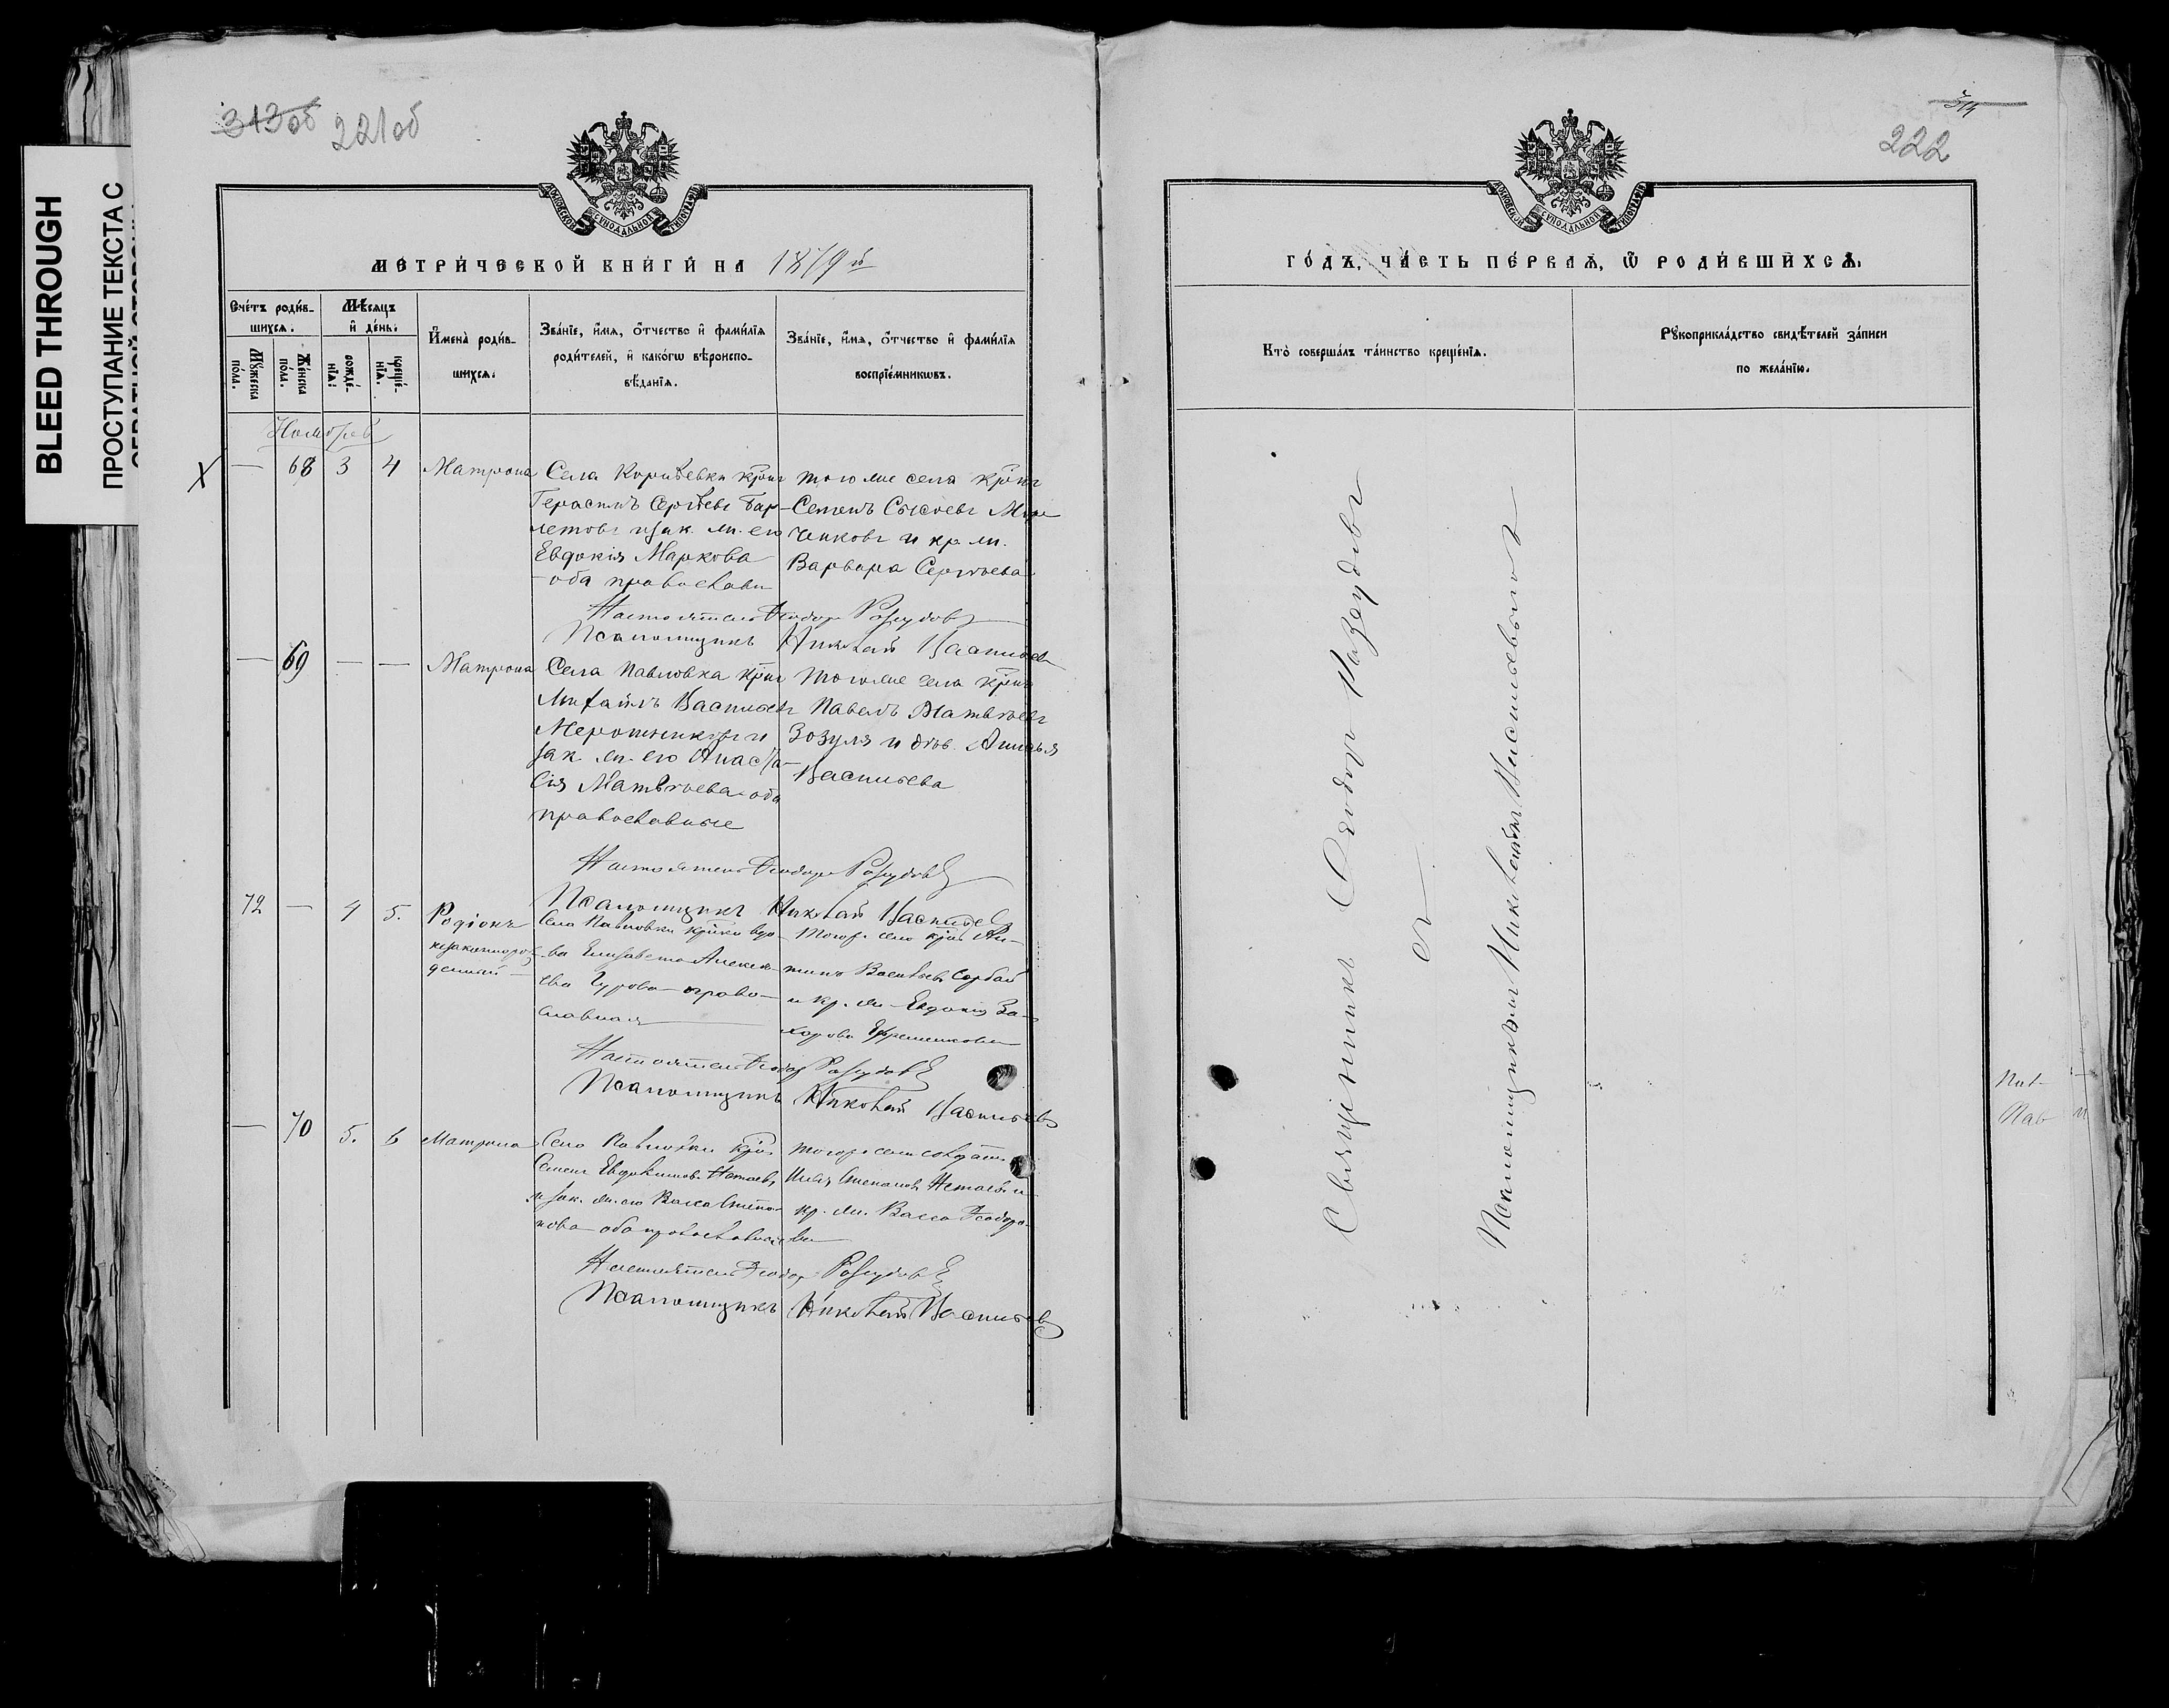 BLEED THROUGH
ПРОСТУПАНИЕ ТЕКСТА С
ОБРАТНОЙ СТОРОНЫ
313об 221об
МЕТРИ́ЧЕСКОЙ КНИ́ГИ НА 1879 й
Сче́тъ роди́в-
шихся.
Мѣсяцъ
и де́нь.
Мꙋжеска
по́ла.
Же́нска
по́ла.
рожде́-
нїѧ.
креще́-
нїѧ.
Имена̀ роди́в-
шихсѧ.
Зва́нїе, и́мѧ, о́тчество и фами́лїѧ
роди́телей, и како́гѡ вѣроиспо-
вѣ́данїѧ.
Зва́нїе, и́мѧ, о́тчество и фами́лїѧ
воспрїе́мникѡвъ.
Ноября
— 68 3 4 Матрона
Села крнъ
Герасимъ Сергѣевъ Бар-
летовъ и зак. ж. его
Евдокія Маркова
оба православн
тогоже села крнъ
Семенъ Сысоевъ
и кр. ж.
Варвара Сергѣева
Настоятель Ѳеодоръ Разсудовъ
Псаломщикъ Николай Васильевъ
— 69 — — Матрона
Села Павловка крнъ
Михаилъ Васильевъ
Мерошник и
зак. ж. его Анаста-
сія Матвѣева оба
православные
тогоже села крнъ
Павелъ Матвѣевъ
Зозуля и дѣв.
Васильева
Настоятель Ѳеодоръ Разсудовъ
Псаломщикъ Николай Васильевъ
72 — 4 5. Родіонъ
незаконнорож
денный —
Села Павловки крнка вдо-
ва Елисавета Алексѣ-
ева Гурова — право-
славная
тогоже села крнъ Ан-
типъ Васильевъ Сорбай
и кр. ж. Евдокія За-
харова Ефременкова
Настоятель Ѳеодоръ Разсудовъ
Псаломщикъ Николай Васильевъ
— 70 5. 6 Матрона
Села Павловки крнъ
Семенъ Евдокимовъ
и зак. ж. его Васса Степа-
нова — оба православные
тогоже села солдатъ
Илья Степановъ
кр. ж. Васса Ѳеодоро-
ва
Настоятель Ѳеодоръ Разсудовъ
Псаломщикъ Николай Васильевъ
314
222
ГО́ДЪ, ЧА́СТЬ ПЕ́РВАѦ, Ѿ РОДИ́ВШИХСѦ.
Кто̀ соверша́лъ та́инство креще́нїѧ.
Рꙋкоприкла́дство свидѣ́телей за́писи
по жела́нїю.
Священникъ Ѳеодоръ Разсудовъ
съ
Псаломщикомъ Николаемъ Васильевымъ